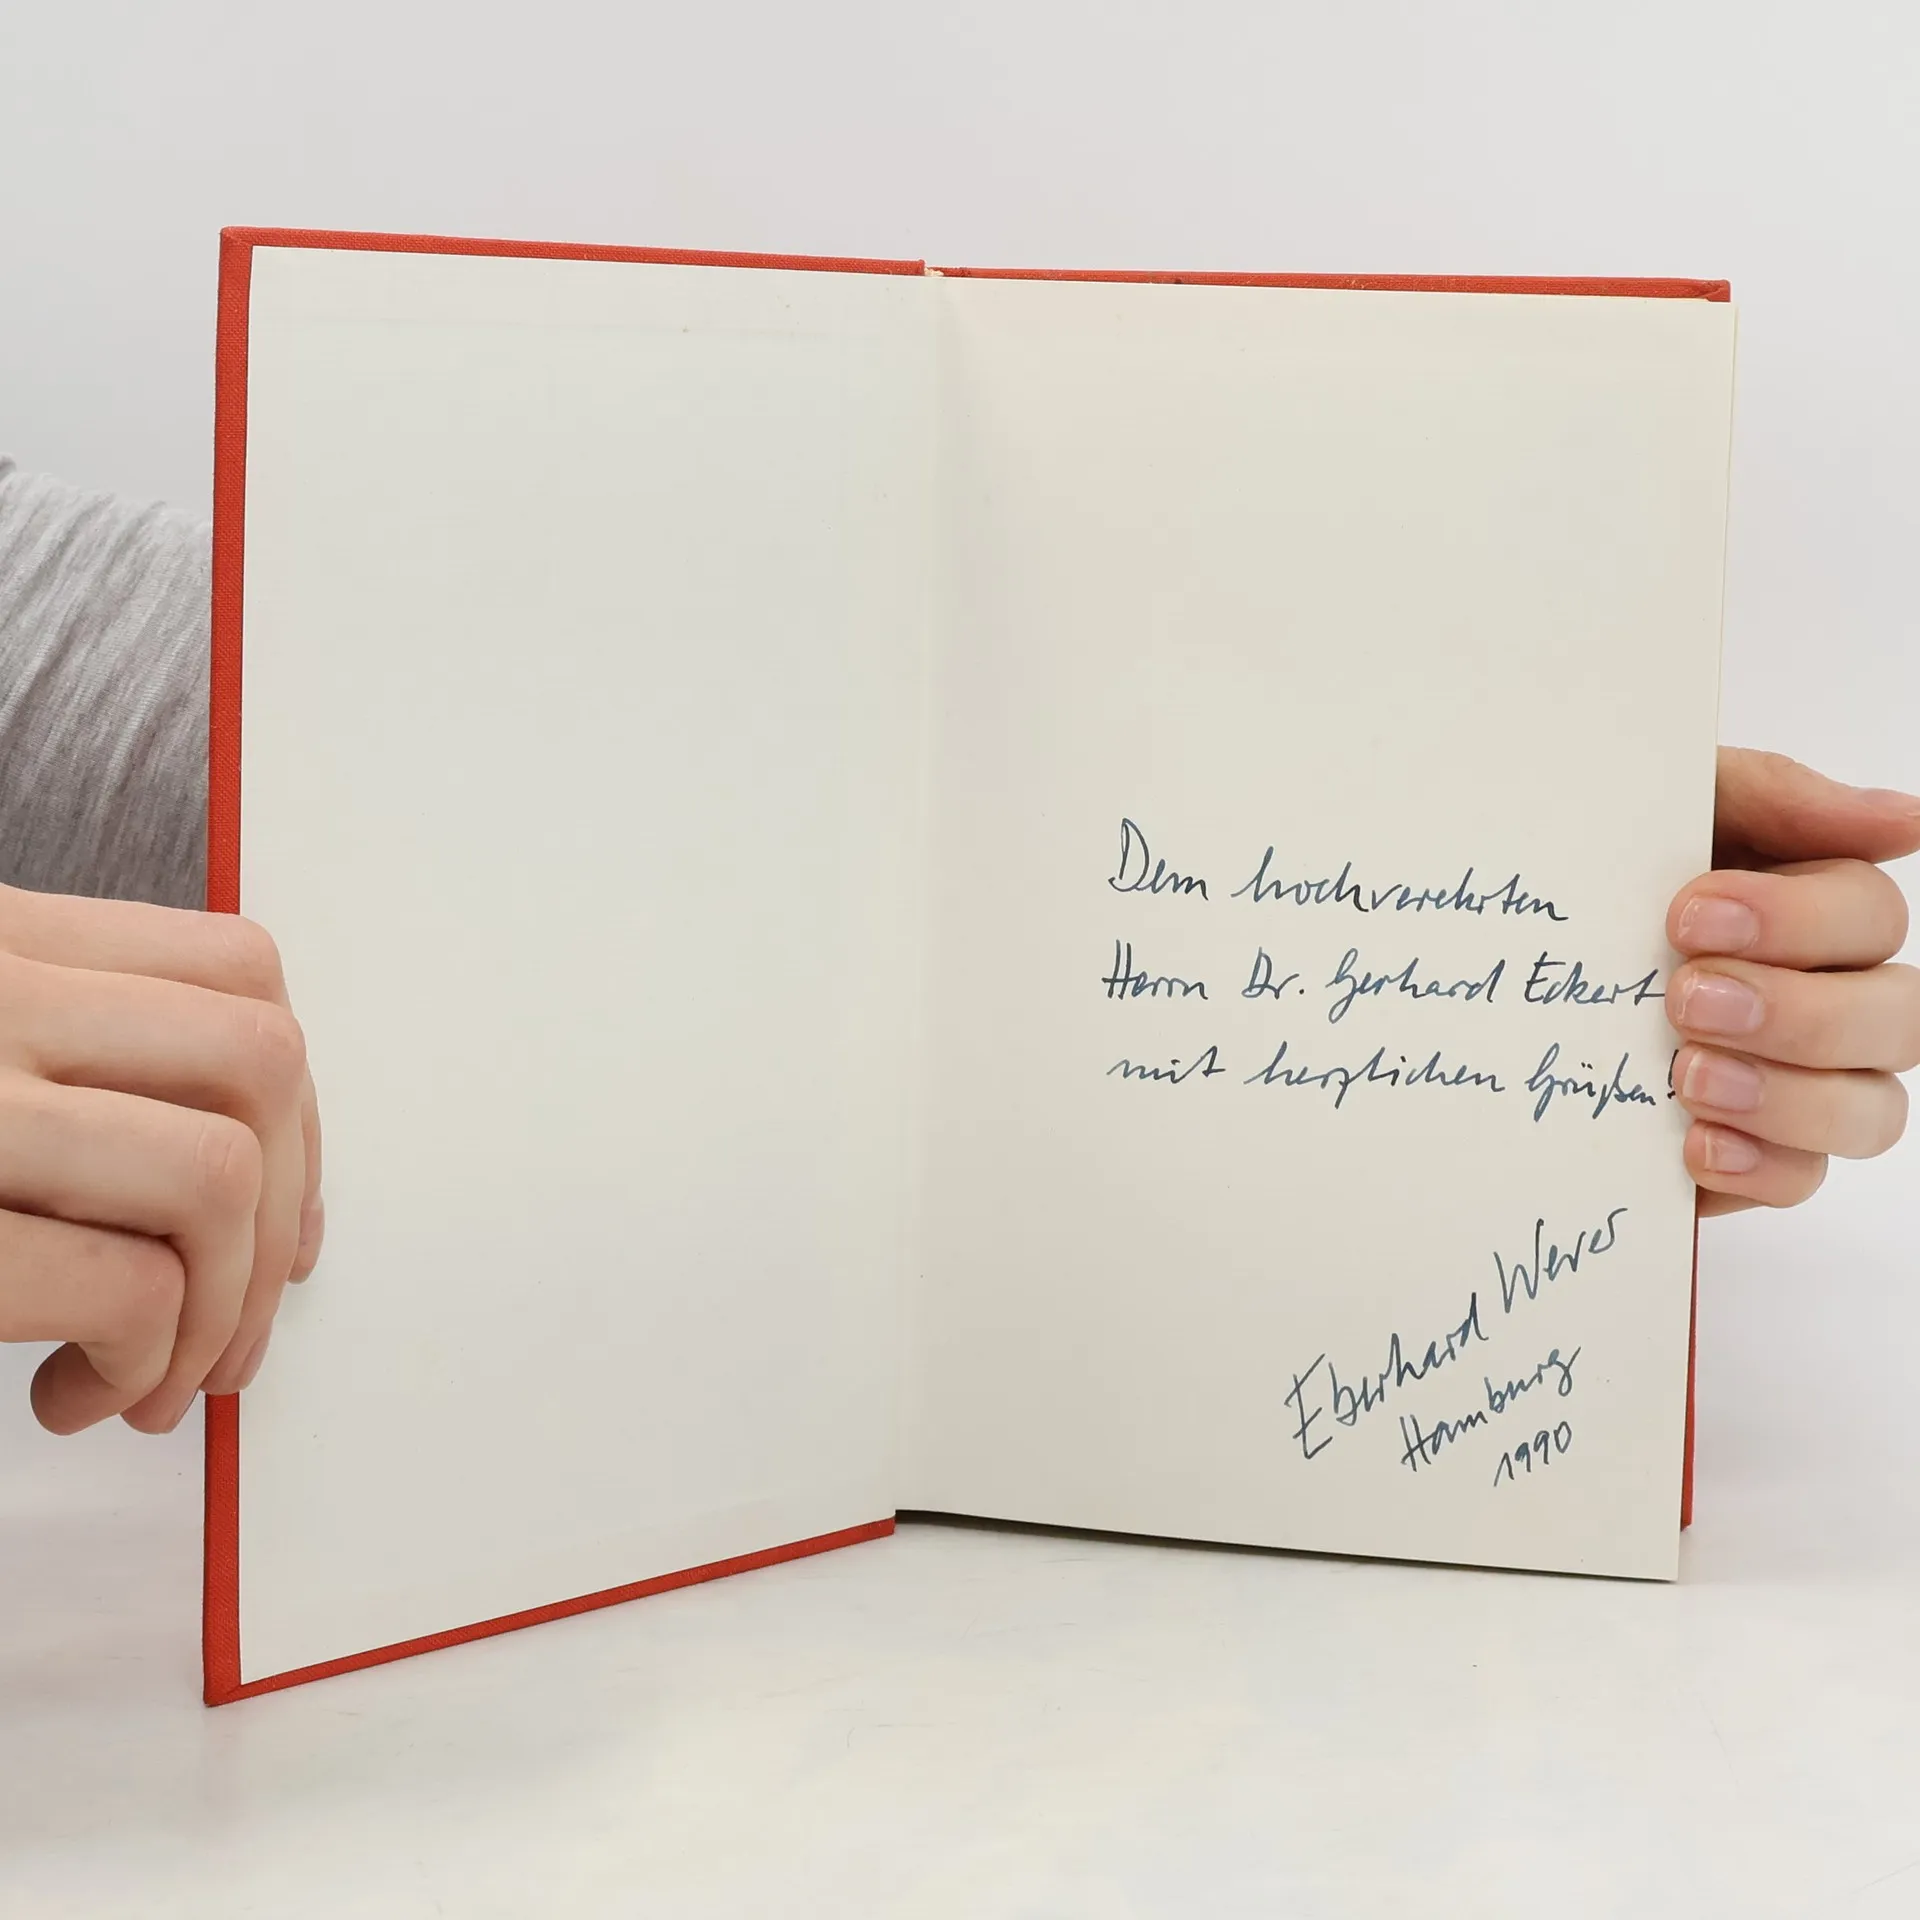 Dem hochverehrten
Herrn Dr. Gerhard Eckert
mit herzlichen Grüßen!
Eberhard Wever
Hamburg
1990